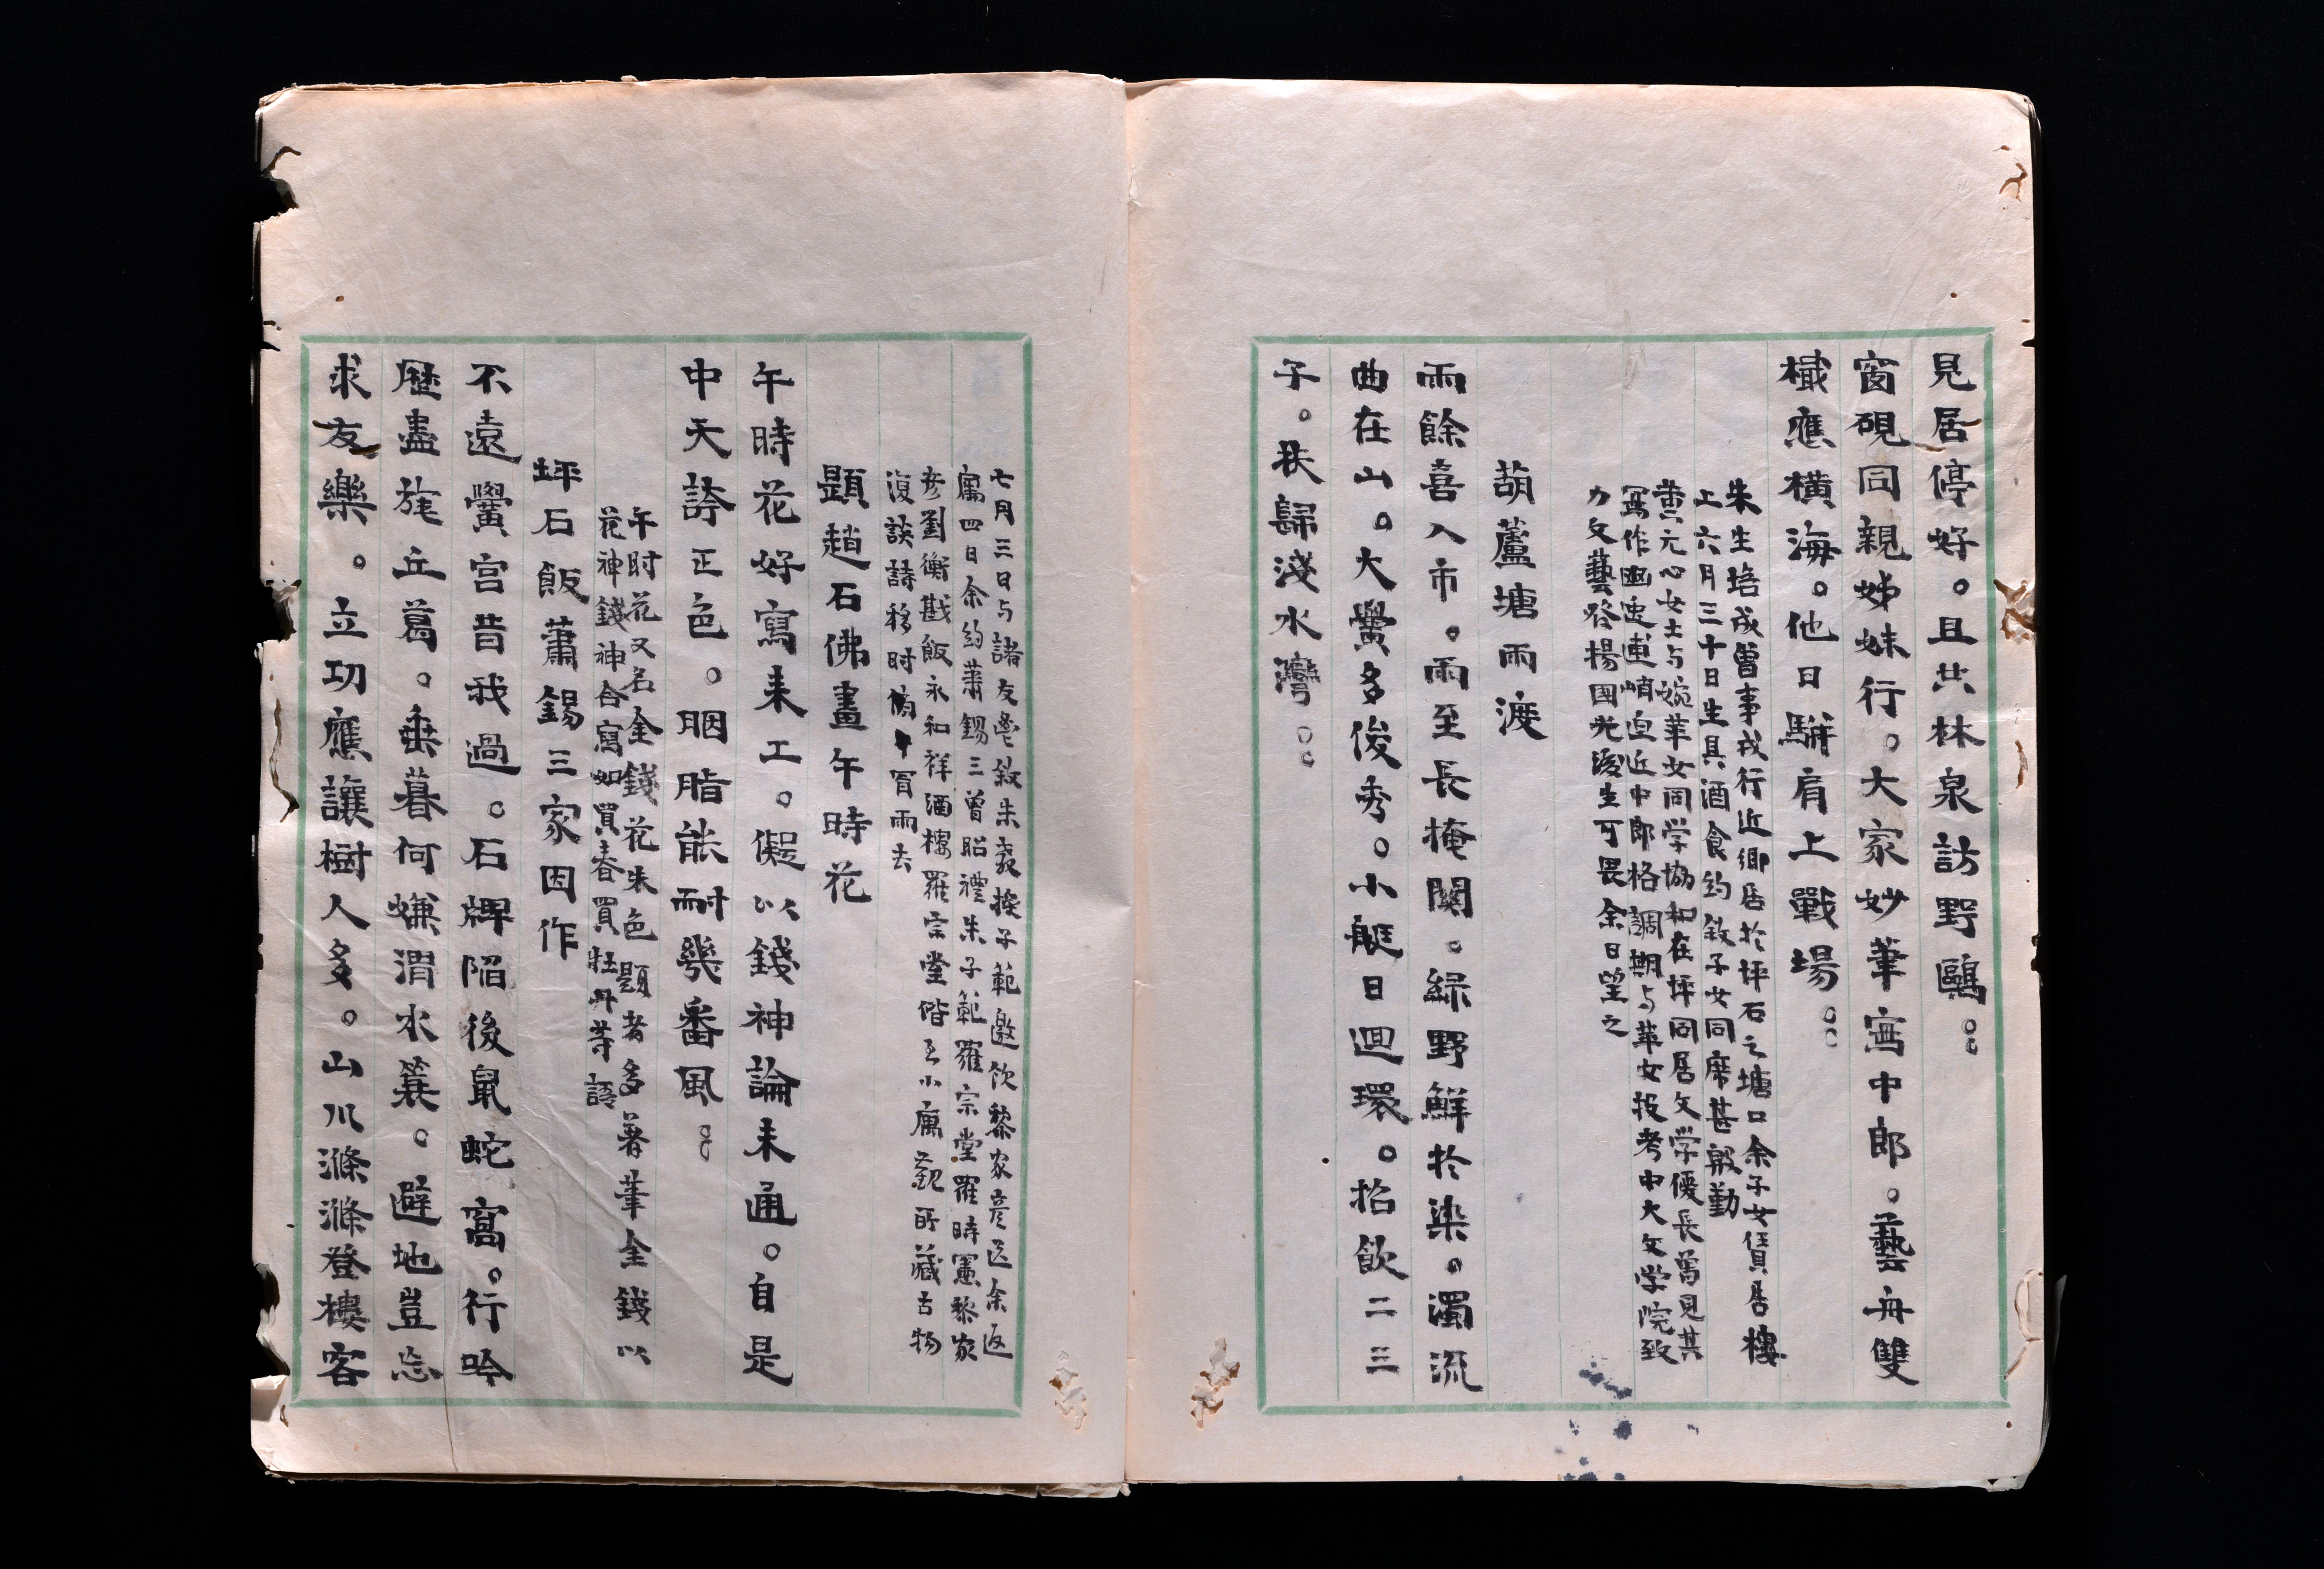 見居停好。且共林泉訪野鷗。
窗硯同親姊妹行。大家妙筆寫中郎。藝舟雙
檝應橫海。他日駢肩上戰場。
朱生培戍曾事戎行近鄉居於坪石之塘口余子女賃居樓
上六月三十日生具酒食約敘子女同席甚殷勤
黃元心女士与婉華女同学協和在坪同居文学優長曾見其
寫作幽連峭迫近中郎格調期与華女投考中大文学院致
力文藝啓揚国光後生可畏余日望之
葫蘆塘雨渡
雨餘喜入市。雨至長掩關。綠野鮮於染。濁流
曲在山。大黌多俊秀。小艇日迴環。招飲二三
子。扶歸淺水灣。
七月三日与諸友 敘朱 子範邀飲黎家彥送余返
寓四日余約蕭錫三曾昭禮朱子範羅宗堂羅時憲黎家
彥劉衡戡飯永和祥酒樓羅宗堂偕至小寓觀所藏古物
復談詩移时 冒雨去
題趙石佛畫午時花
午時花好寫来工。儗以錢神論未通。自是
中天誇正色。胭脂能耐幾番風。
午时花又名金錢花朱色題者多著筆金錢以
花神錢神合寫如買春買牡丹等語
坪石飯蕭錫三家因作
不遠黌宮昔我過。石牌陷後鼠蛇窩。行吟
歷盡旄丘葛。垂暮何嫌渭水簑。避地豈忘
求友樂。立功應讓樹人多。山川滌滌登樓客